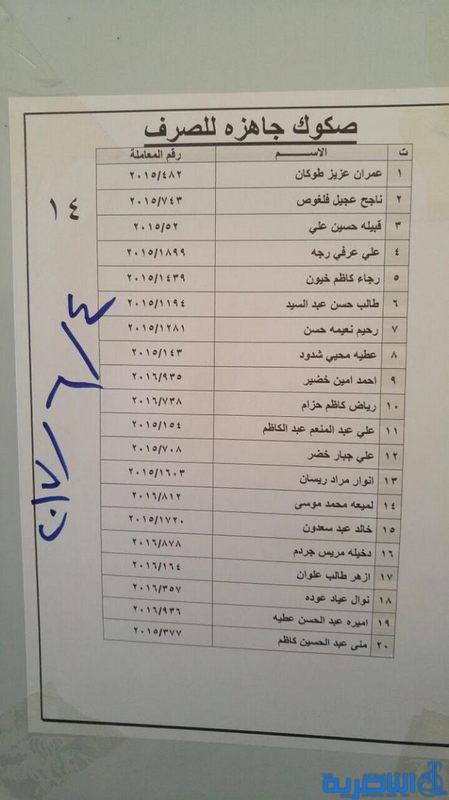 صكوك جاهزه للصرف
ت الاســـم رقم المعاملة
١ عمران عزيز طوكان ٢٠١٥/٤٨٢
٢ ناجح عجيل فلغوص ٢٠١٥/٧٤٣
٣ قبيله حسين علي ٢٠١٥/٥٢
٤ علي عرفي رجه ٢٠١٥/١٨٩٩
٥ رجاء كاظم خيون ٢٠١٥/١٤٣٩
٦ طالب حسن عبد السيد ٢٠١٥/١١٩٤
٧ رحيم نعيمه حسن ٢٠١٥/١٢٨١
٨ عطيه محيي شدود ٢٠١٥/١٤٣
٩ احمد امين خضير ٢٠١٦/٩٣٥
١٠ رياض كاظم حزام ٢٠١٦/٧٣٨
١١ علي عبد المنعم عبد الكاظم ٢٠١٥/١٥٤
١٢ علي جبار خضر ٢٠١٥/٧٠٨
١٣ انوار مراد ريسان ٢٠١٥/١٦٠٣
١٤ لميعه محمد موسى ٢٠١٦/٨١٢
١٥ خالد عبد سعدون ٢٠١٥/١٧٢٠
١٦ دخيله مريس جردم ٢٠١٦/٨٧٨
١٧ ازهر طالب علوان ٢٠١٦/١٦٤
١٨ نوال عياد عوده ٢٠١٦/٣٥٧
١٩ اميره عبد الحسن عطيه ٢٠١٦/٩٣٦
٢٠ منى عبد الحسين كاظم ٢٠١٥/٣٧٧
١٤
٢٠١٧/٦/٤
الناصرية